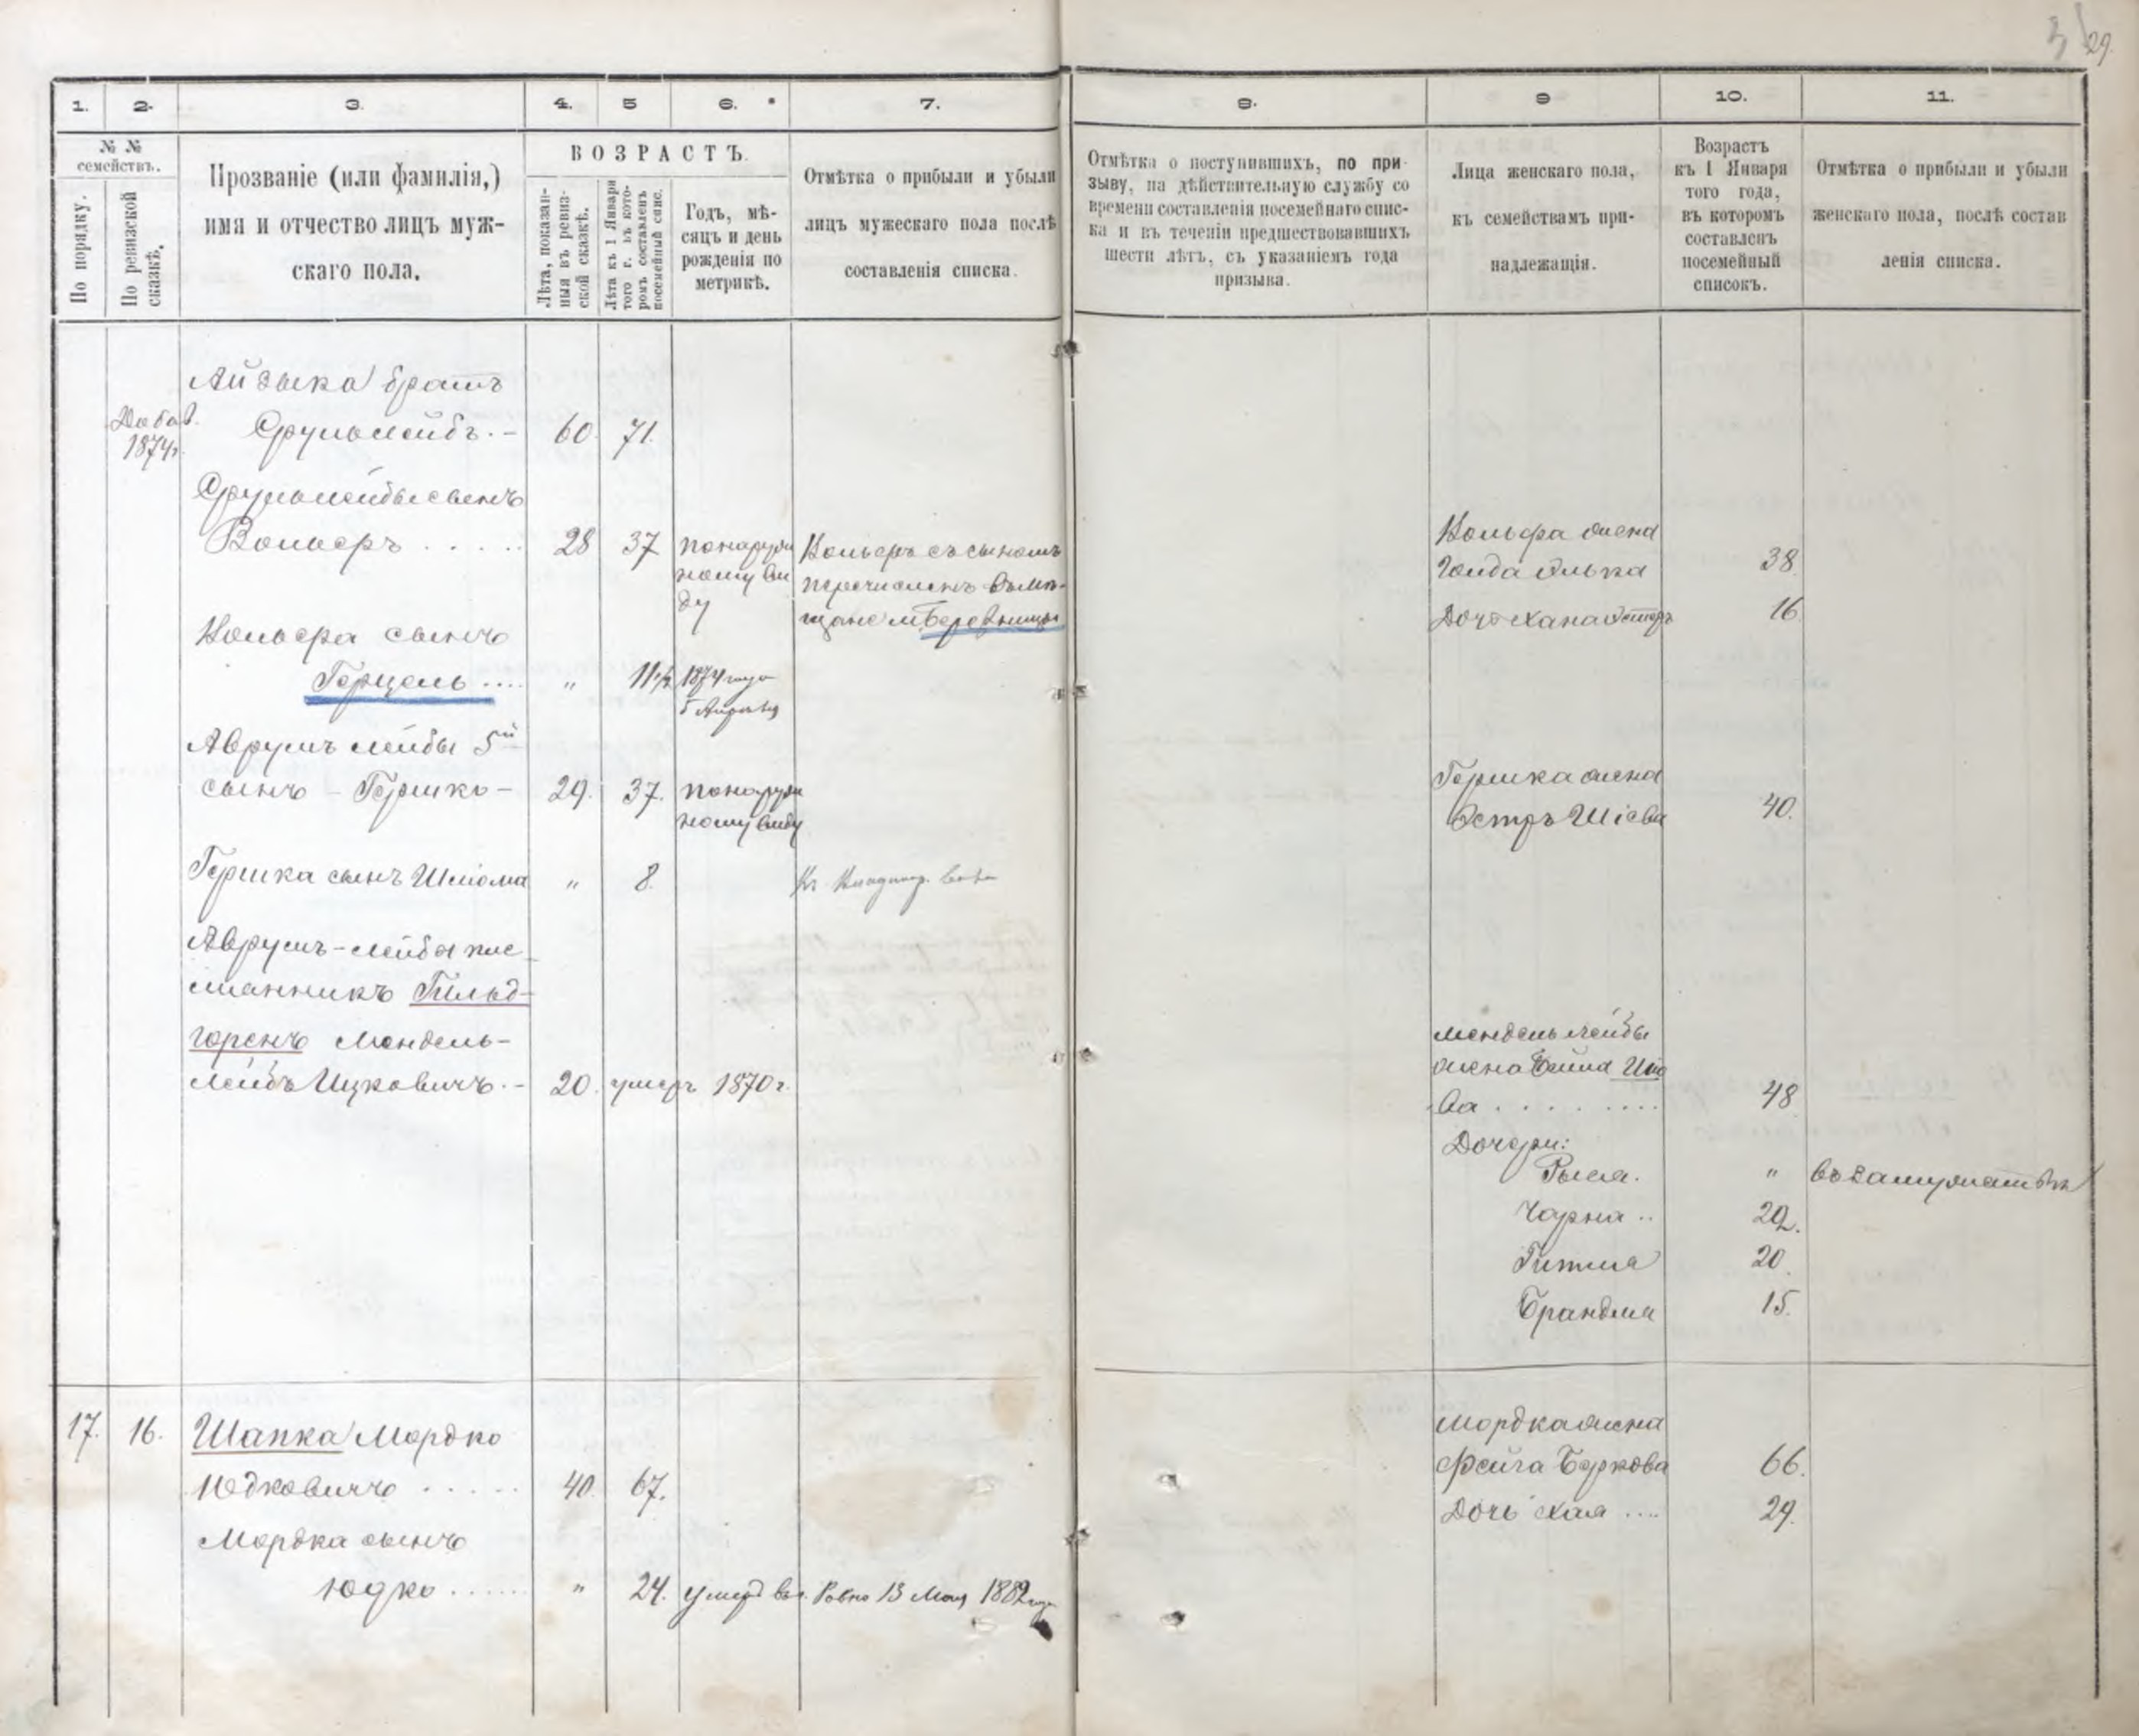 29.
1.
2.
3.
4.
5
6.
7.
8.
9
10.
11.
№ №
семействъ.
По порядку.
По ревизской
сказкѣ.
Прозваніе (или фамилія,)
имя и отчество лицъ муж-
скаго пола.
ВОЗРАСТЪ.
Лѣта, показан-
ныя въ ревиз-
ской сказкѣ.
Лѣта къ 1 Января
того г. въ кото-
ромъ составленъ
посемейный спис.
Годъ, мѣ-
сяцъ и день
рожденія по
метрикѣ.
Отмѣтка о прибыли и убыли
лицъ мужескаго пола послѣ
составленія списка.
Отмѣтка о поступившихъ, по при-
зыву, на дѣйствительную службу со
времени составленія посемейнаго спис-
ка и въ теченіи предшествовавшихъ
шести лѣтъ, съ указаніемъ года
призыва.
Лица женскаго пола,
къ семействамъ при-
надлежащія.
Возрастъ
къ 1 Января
того года,
въ которомъ
составленъ
посемейный
списокъ.
Отмѣтка о прибыли и убыли
женскаго пола, послѣ состав
ленія списка.
Айзыка братъ
Добав.
1874г.
Срульлейбъ.- 60. 71.
Срульлейбы сынъ
Вольфъ ..... 28 37 понаруж
ному ви
ду
Вольфъ съ сыномъ
перечисленъ въ мѣ-
щане м. Березницы
Вольфа жена
Голда Элька 38
Дочь Хана Эстеръ 16
Вольфа сынъ
Герцель .... " 11½ 1874 года
5 Апрѣля
Аврумъ лейбы 5й
сынъ - Гершко - 29. 37. понаруж
ному виду
Гершка жена
Эстръ Шіева 40.
Гершка сынъ Шліома " 8.
Аврумъ-лейбы пле-
мянникъ Гильд-
горенъ Мендель-
Лейбъ Ицковичъ.- 20. умеръ 1870 г.
Мендель лейбы
жена Бейла
ва ......... 48
Дочери:
Рыся. " въ замужествѣ
Чарна .. 22.
Гитля 20.
Брандля 15.
17. 16. Шапка Мордко
Юдковичъ ..... 40. 67.
Мордка жена
Фейга Беркова 66.
Дочь Хая .... 29.
Мордка сынъ
Юдко ...... " 24. умеръ въ г. Ровно 13 Мая 1882 года